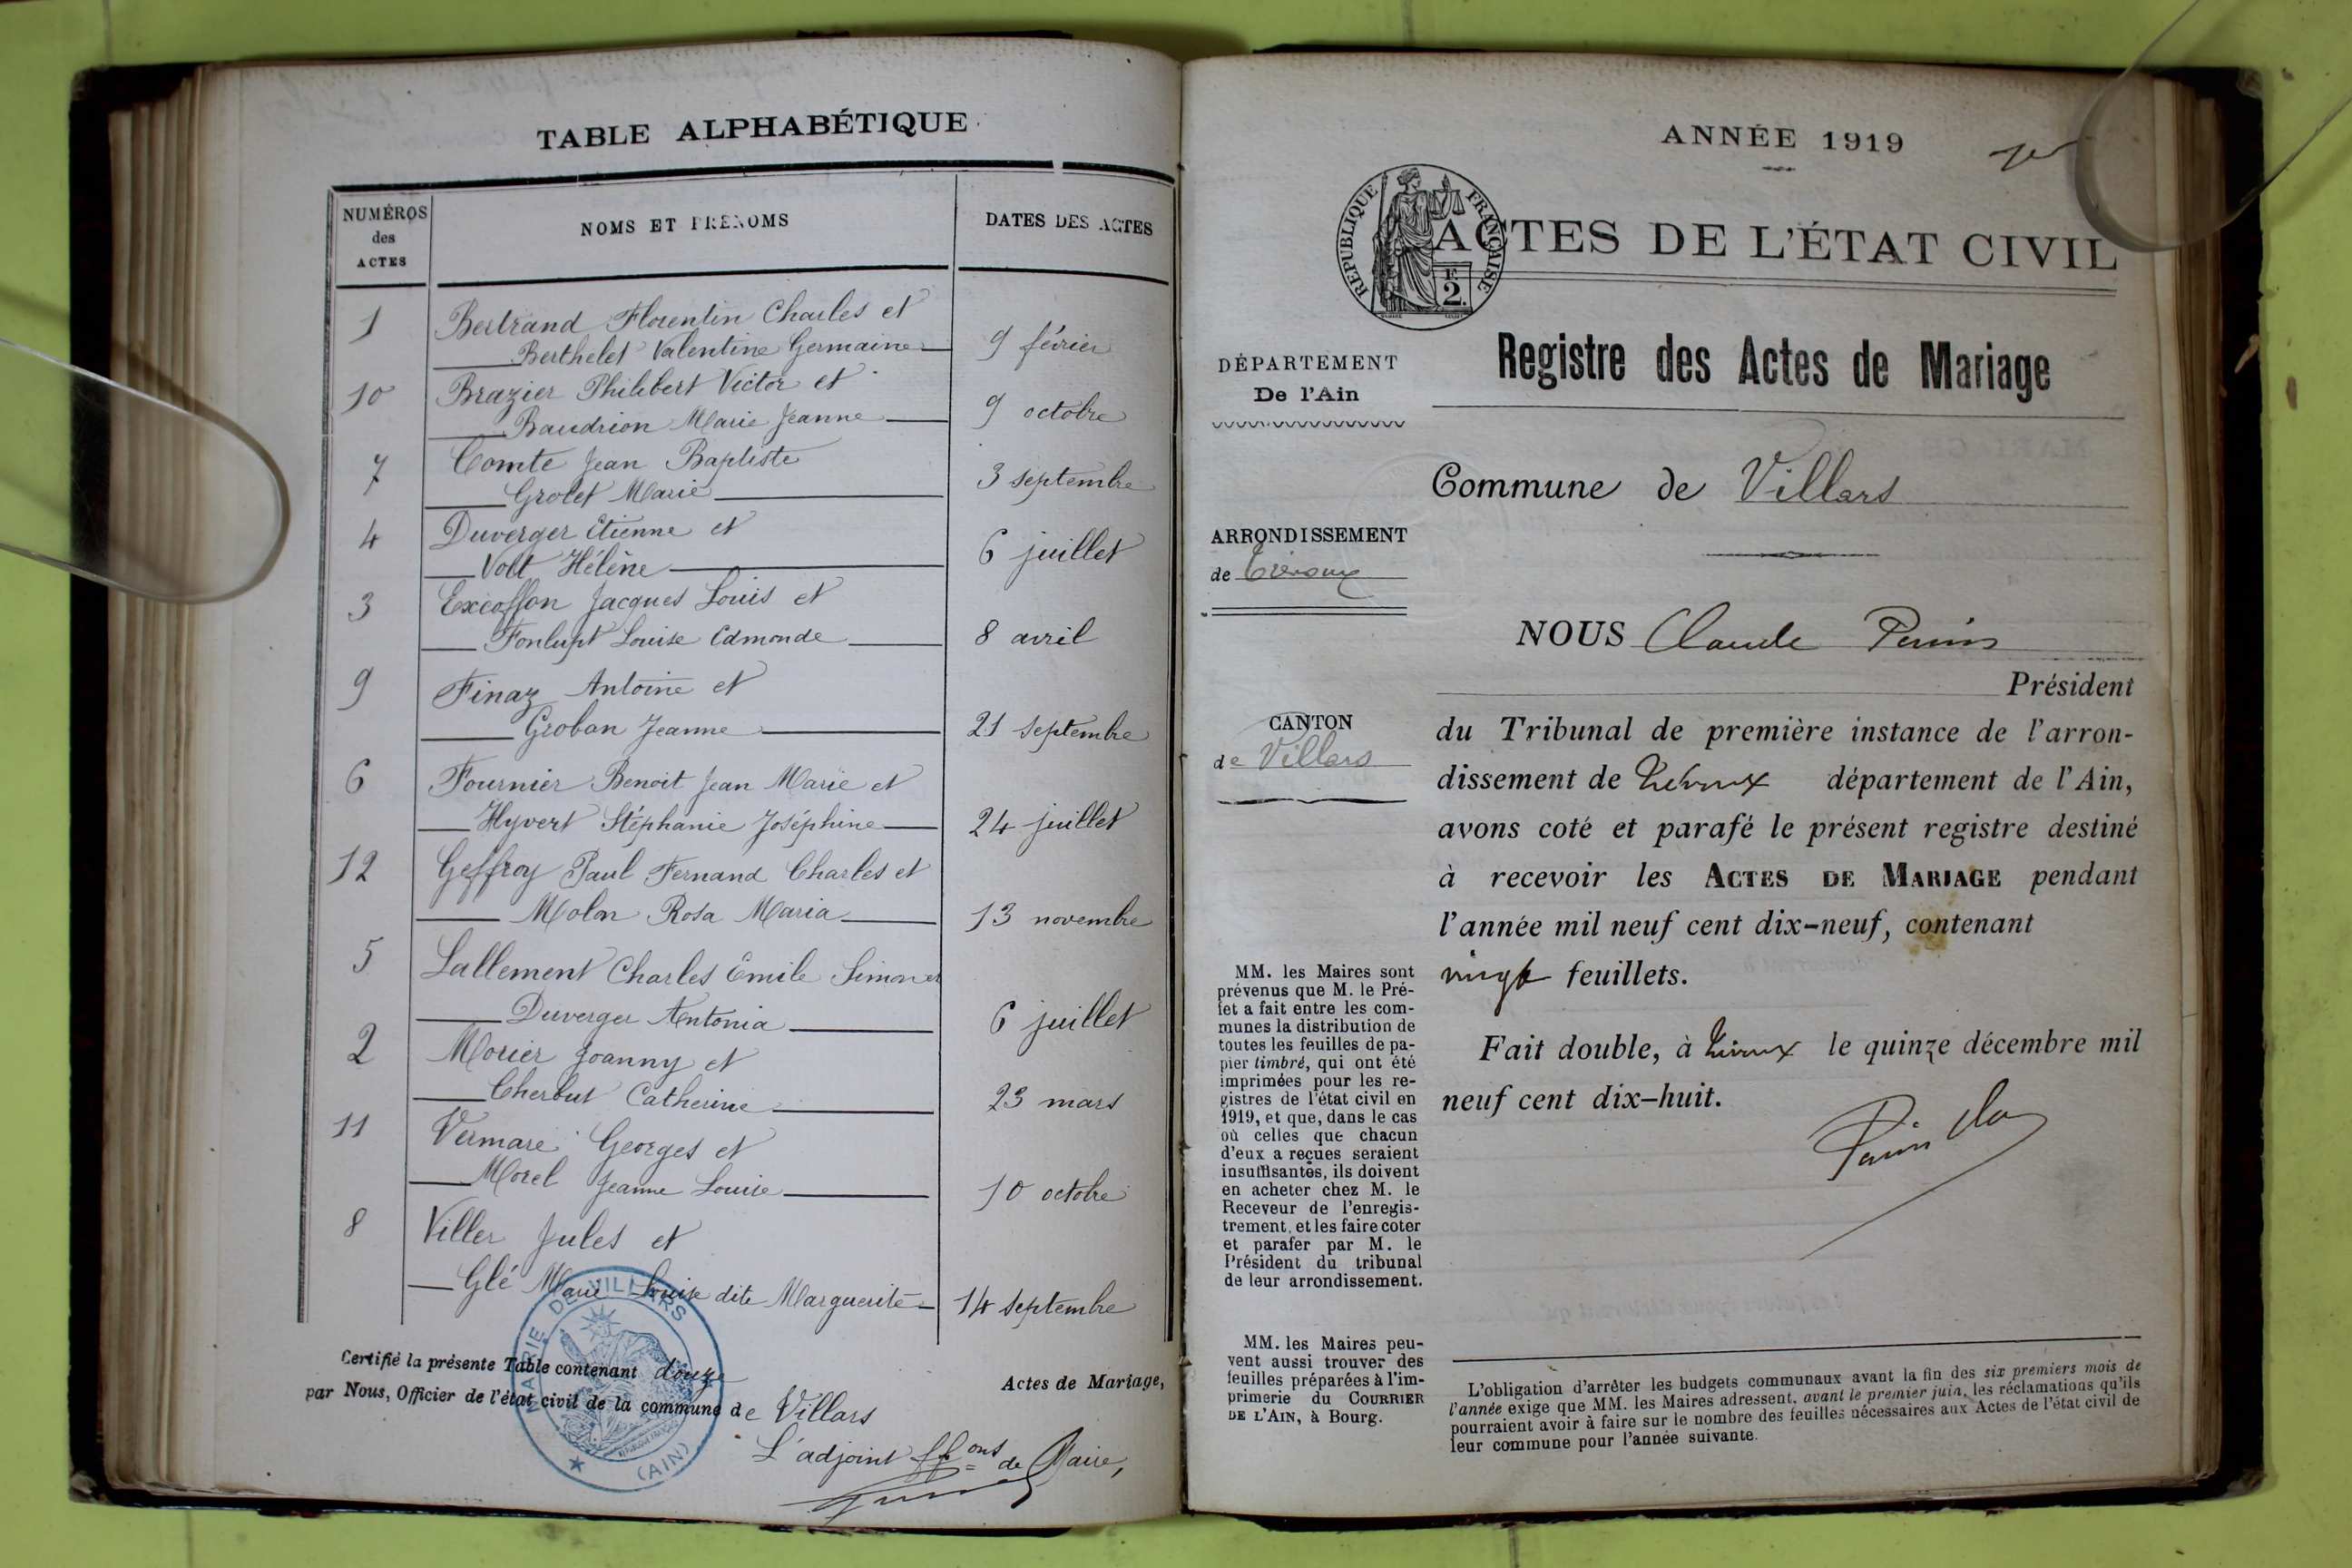 TABLE ALPHABÉTIQUE
NUMÉROS
des
ACTES
NOMS ET PRÉNOMS
DATES DES ACTES
1
Bertrand Florentin Charles et
Berthelet Valentine Germaine
9 février
10
Brazier Philibert Victor et
Baudrion Marie Jeanne
9 octobre
7
Comte Jean Baptiste
Grolet Marie
3 septembre
4
Duverger Etienne et
Volt Hélène
6 juillet
3
Excoffon Jacques Louis et
Fonlupt Louise Edmonde
8 avril
9
Finaz Antoine et
Groban Jeanne
21 septembre
6
Fournier Benoit Jean Marie et
Hyvert Stéphanie Joséphine
24 juillet
12
Geffroy Paul Fernand Charles et
Molon Rosa Maria
13 novembre
5
Lallement Charles Emile Simon et
Duverger Antonia
6 juillet
2
Morier Joanny et
Cherbut Catherine
23 mars
11
Vermare Georges et
Morel Jeanne Louise
10 octobre
8
Viller Jules et
Glé Marie Louise dite Marguerite
14 septembre
Certifié la présente Table contenant douze
Actes de Mariage,
par Nous, Officier de l'état civil de la commune de Villars
L'adjoint ff.ons de Maire,
MAIRIE DE VILLARS
(AIN)
ANNÉE 1919
RÉPUBLIQUE FRANÇAISE
F.
2.
ACTES DE L'ÉTAT CIVIL
Registre des Actes de Mariage
DÉPARTEMENT
De l'Ain
Commune de Villars
ARRONDISSEMENT
de Trévoux
CANTON
de Villars
NOUS Claude Perrin
Président
du Tribunal de première instance de l'arron-
dissement de Trévoux département de l'Ain,
avons coté et parafé le présent registre destiné
à recevoir les ACTES DE MARIAGE pendant
l'année mil neuf cent dix-neuf, contenant
vingt feuillets.
Fait double, à Trévoux le quinze décembre mil
neuf cent dix-huit.
MM. les Maires sont
prévenus que M. le Pré-
fet a fait entre les com-
munes la distribution de
toutes les feuilles de pa-
pier timbré, qui ont été
imprimées pour les re-
gistres de l'état civil en
1919, et que, dans le cas
où celles que chacun
d'eux a reçues seraient
insuffisantes, ils doivent
en acheter chez M. le
Receveur de l'enregis-
trement, et les faire coter
et parafer par M. le
Président du tribunal
de leur arrondissement.
MM. les Maires peu-
vent aussi trouver des
feuilles préparées à l'im-
primerie du COURRIER
DE L'AIN, à Bourg.
L'obligation d'arrêter les budgets communaux avant la fin des six premiers mois de
l'année exige que MM. les Maires adressent, avant le premier juin, les réclamations qu'ils
pourraient avoir à faire sur le nombre des feuilles nécessaires aux Actes de l'état civil de
leur commune pour l'année suivante.